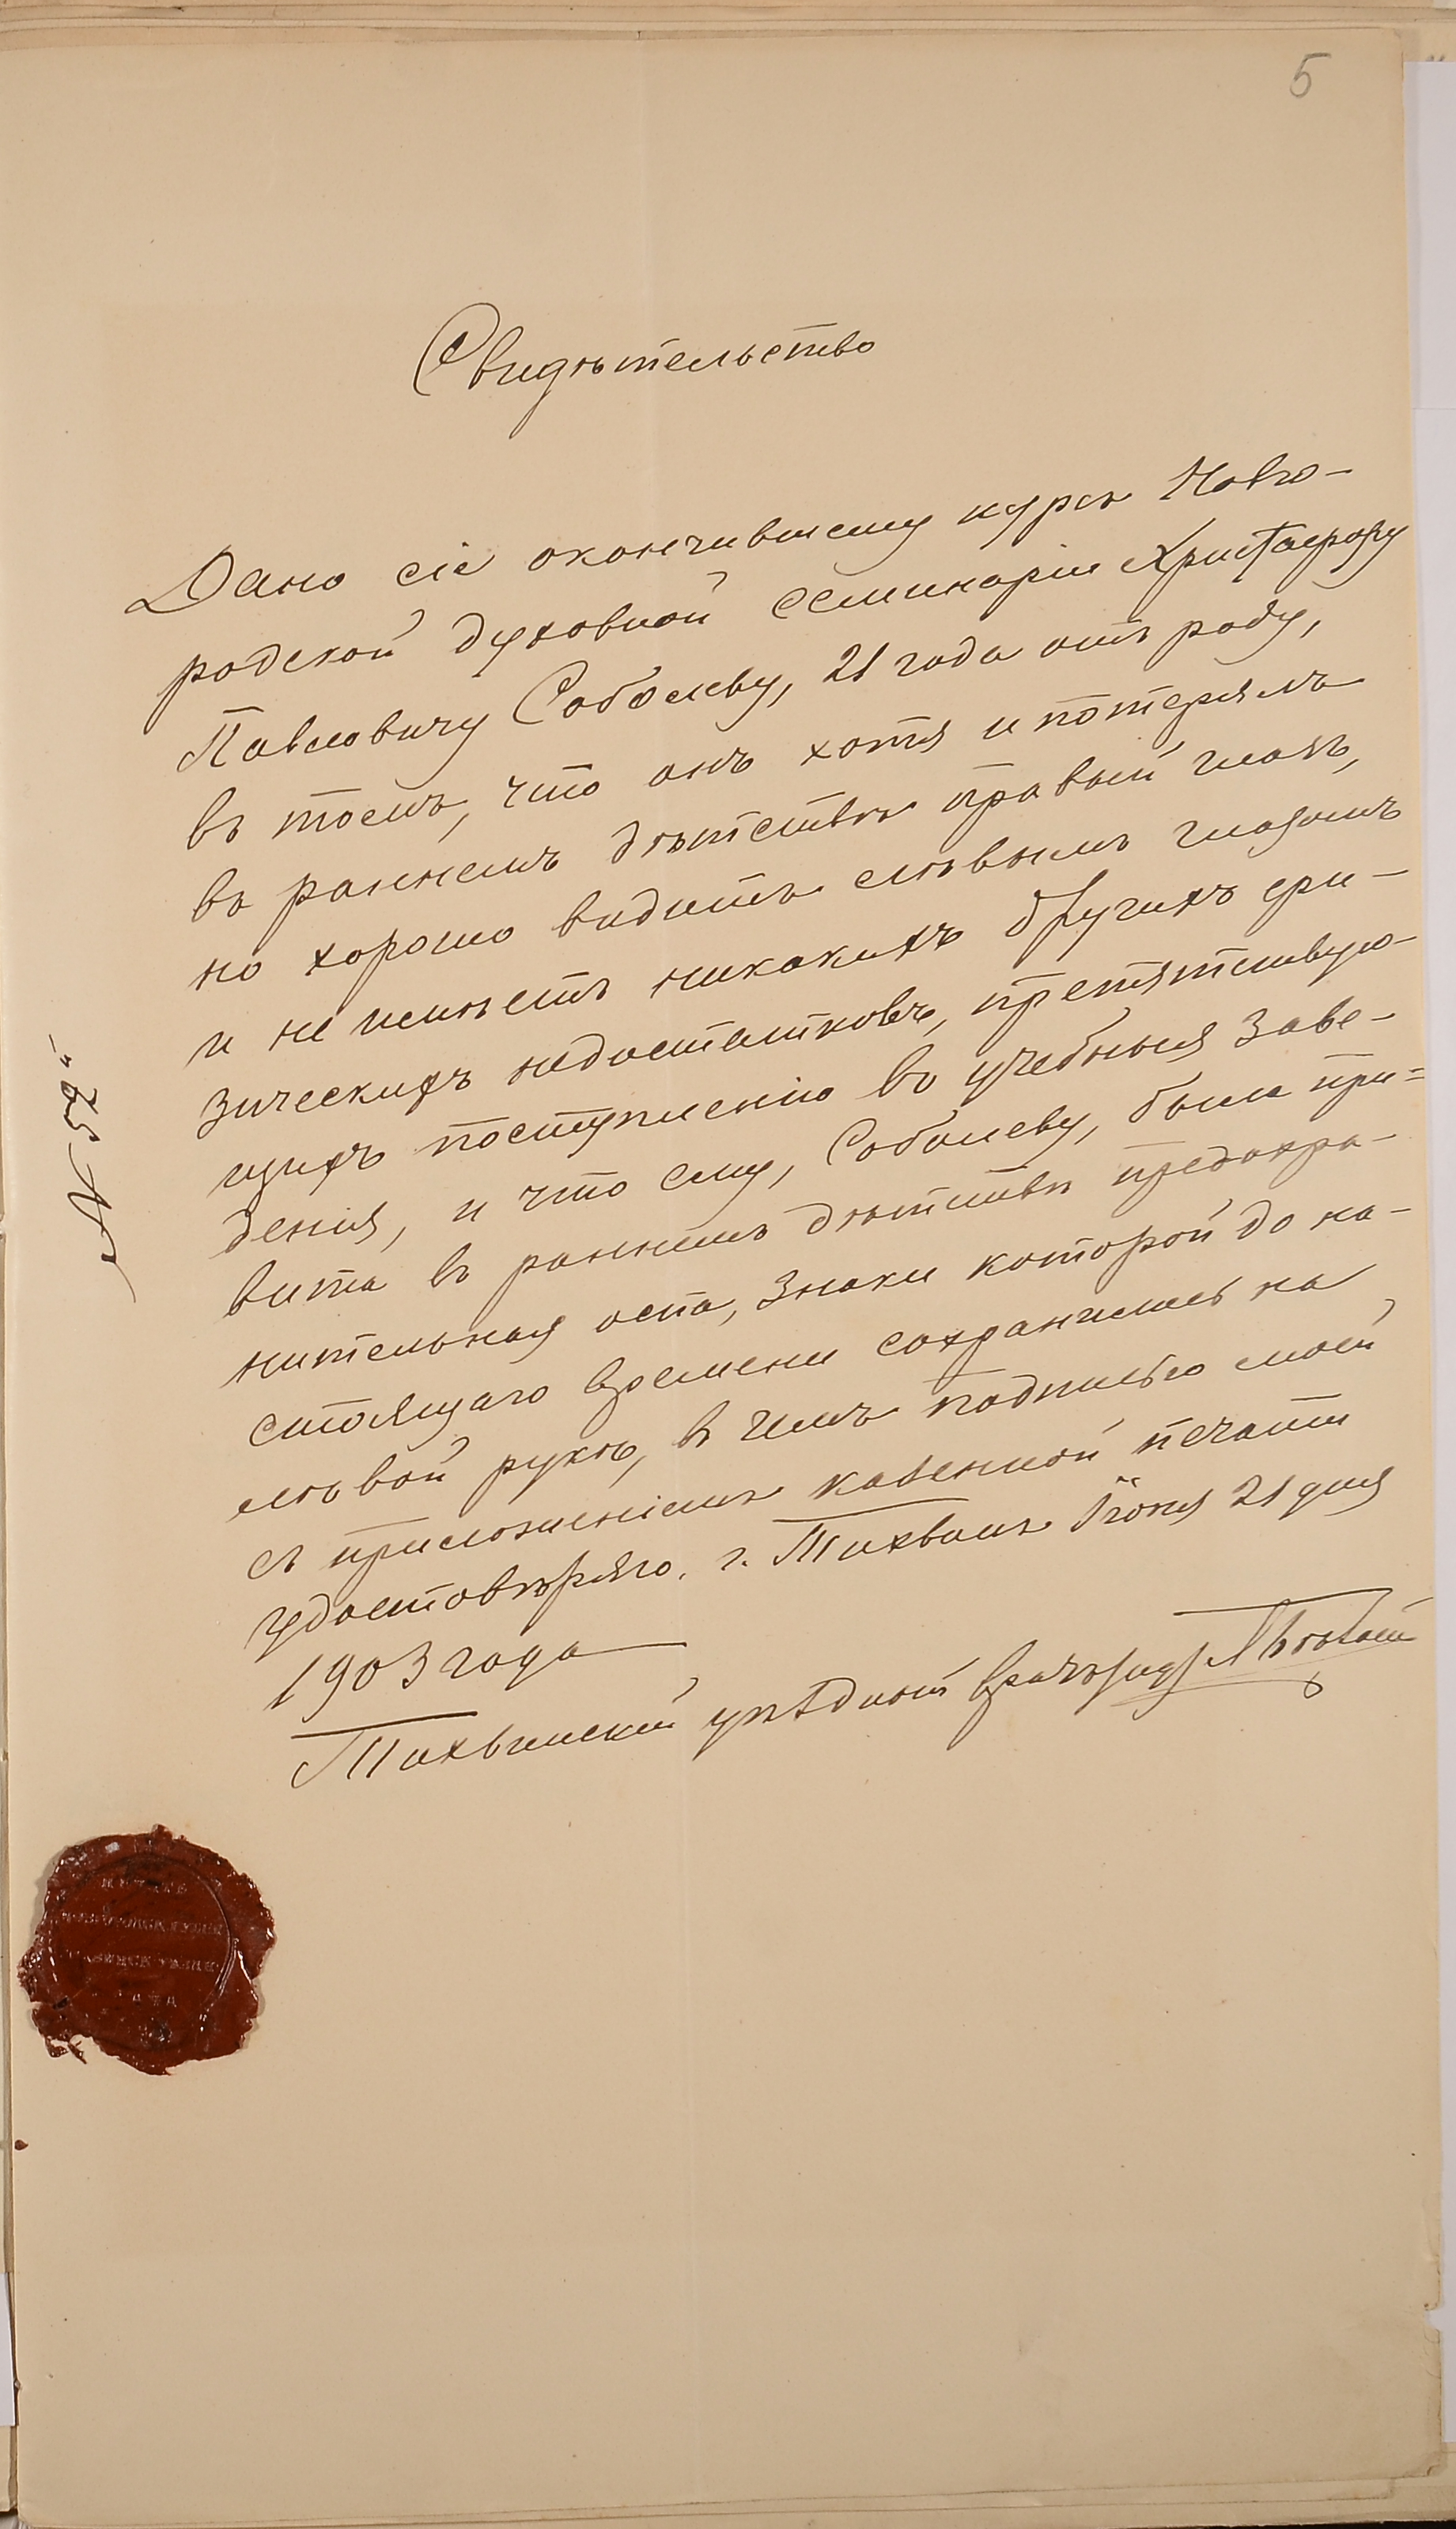 5
Свидѣтельство
Дано сіе окончившему курсъ Новго-
родской духовной семинаріи Христофору
Павловичу Соболеву, 21 года отъ роду,
въ томъ, что онъ хотя и потерялъ
въ раннемъ дѣтствѣ правый глазъ,
но хорошо видитъ лѣвымъ глазомъ
и не имѣетъ никакихъ другихъ фи-
зическихъ недостатковъ, препятствую-
щихъ поступленію въ учебныя заве-
денія, и что ему, Соболеву, была при=
вита въ раннемъ дѣтствѣ предохра-
нительная оспа, знаки которой до на-
стоящаго времени сохранились на
лѣвой рукѣ, въ чемъ подписью моей,
съ приложеніемъ казенной печати
удостовѣряю. г. Тихвинъ Іюня 21 дня
1903 года
Тихвинскій уѣздный врачъ
№ 57